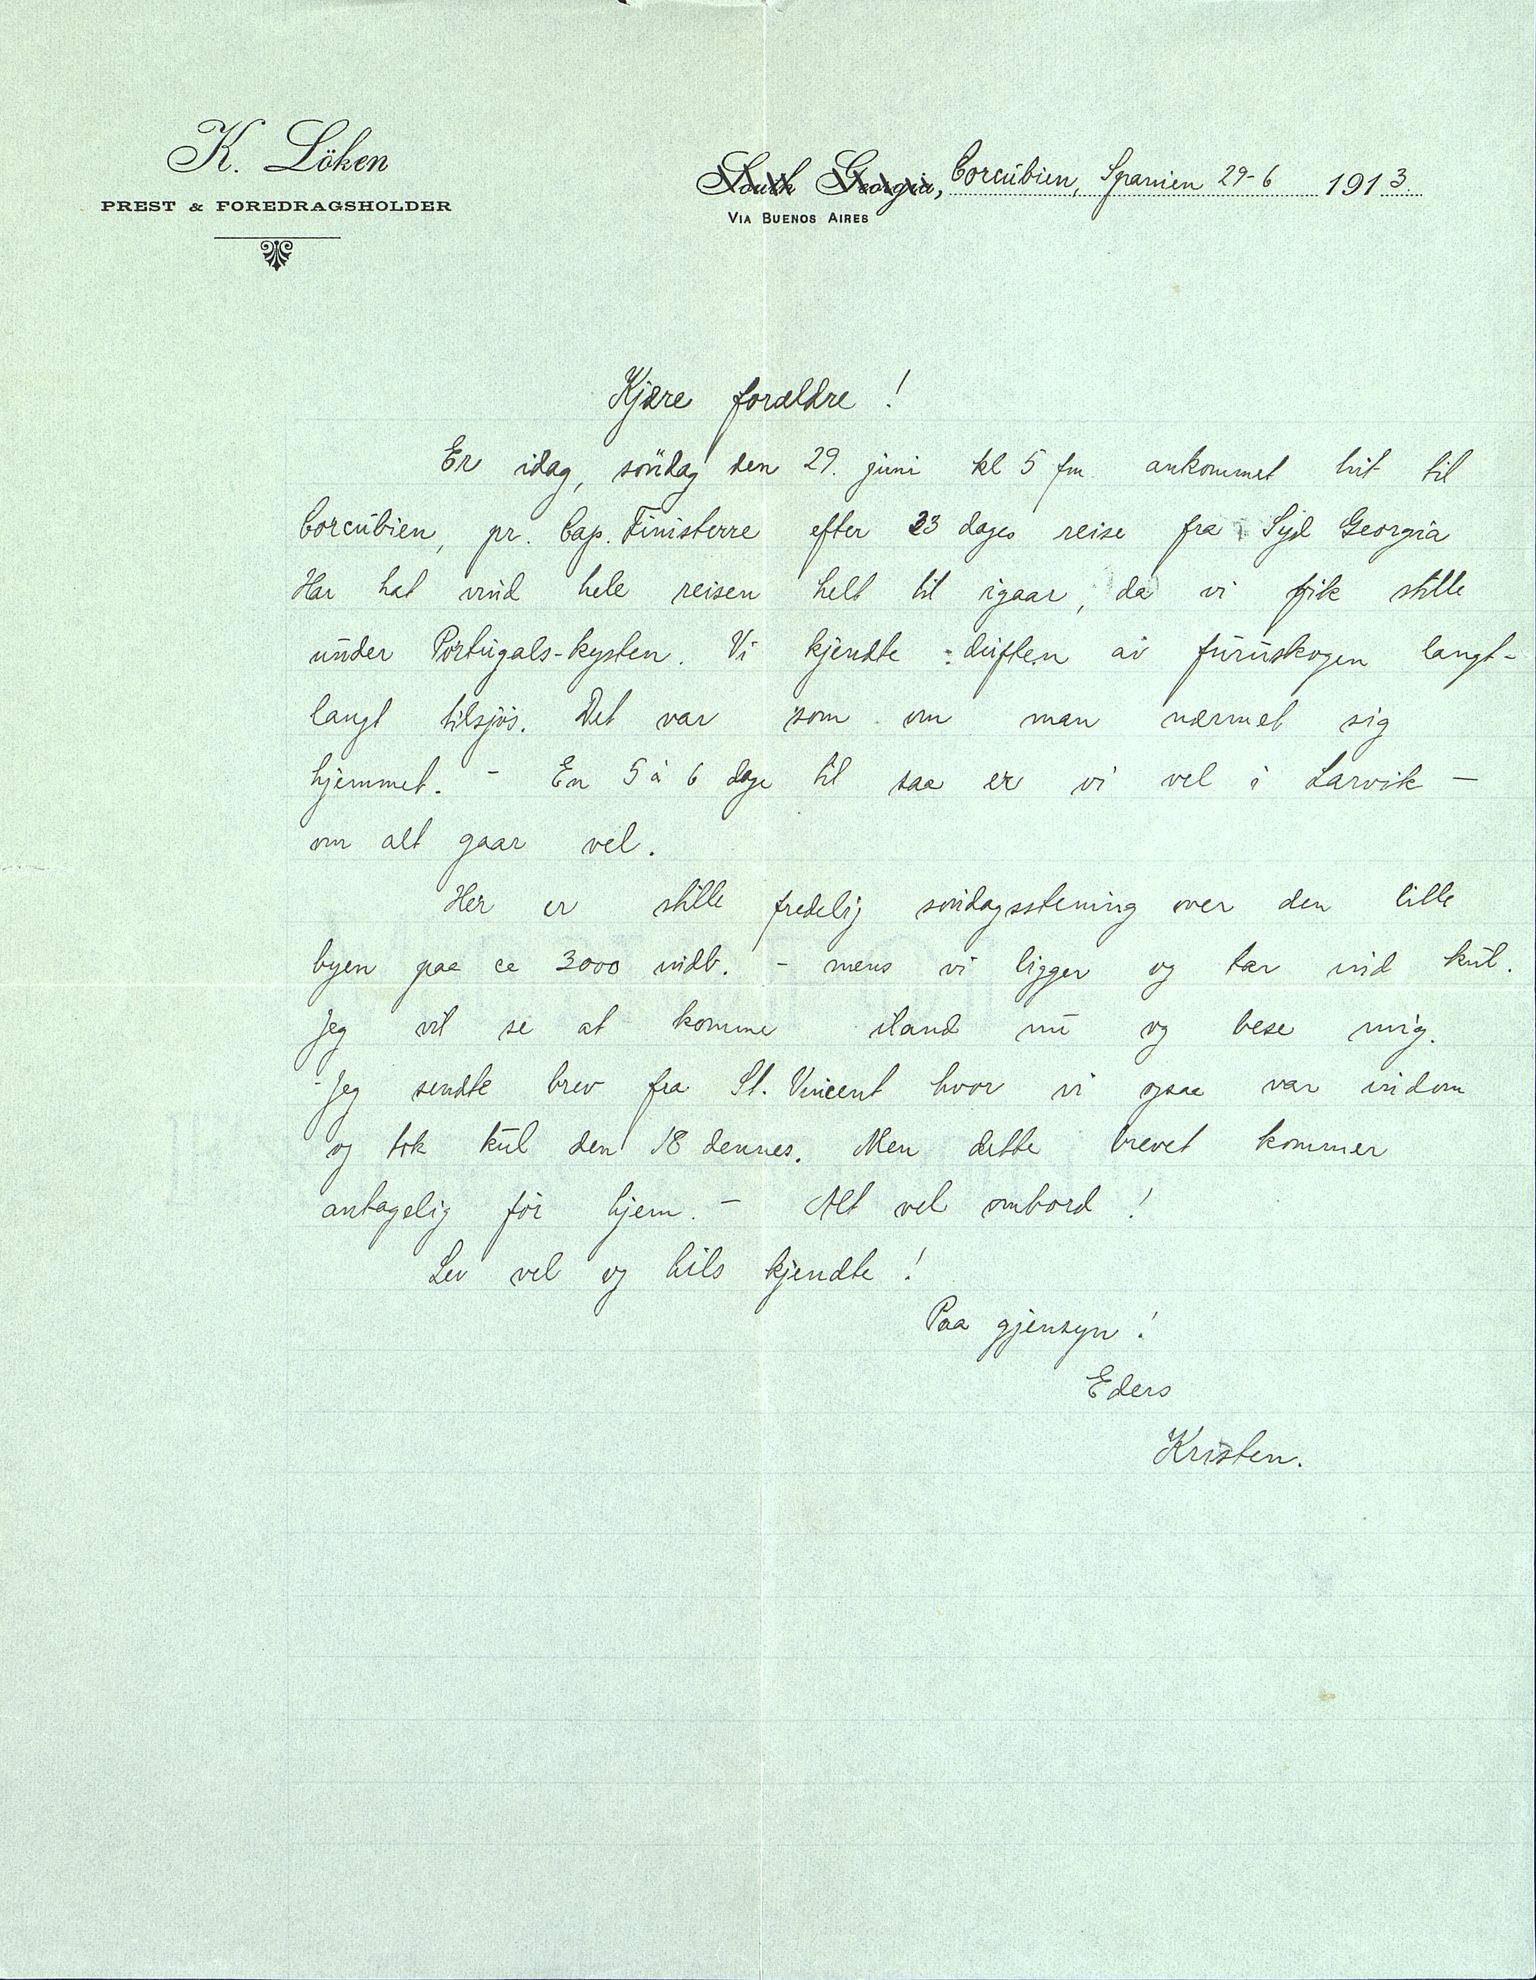 K. Löken
PREST & FOREDRAGSHOLDER
South Georgia, Corcúbien, Spanien 29-6 1913.
VIA BUENOS AIRES
Kjære forældre!
Er idag, söndag den 29. juni kl 5 fm. ankommet hit til
Corcúbien, pr. Cap. Finisterre efter 23 dages reise fra Syd Georgia
Har hat vind hele reisen helt til igaar, da vi fik stille
under Portugals-kysten. Vi kjendte duften av furuskogen langt-
langt tilsjös. Det var som om man nærmet sig
hjemmet. - En 5 à 6 dage til saa er vi vel i Larvik —
om alt gaar vel.
Her er stille fredelig söndagsstemning over den lille
byen paa ca 3000 indb. - mens vi ligger og tar ind kul.
Jeg vil se at komme iland nu og bese mig.
- Jeg sendte brev fra St. Vincent hvor vi ogsaa var indom
og tok kul den 18 dennes. Men dette brevet kommer
antagelig för hjem. - Alt vel ombord!
Lev vel og hils kjendte!
Paa gjensyn!
Eders
Kristen.